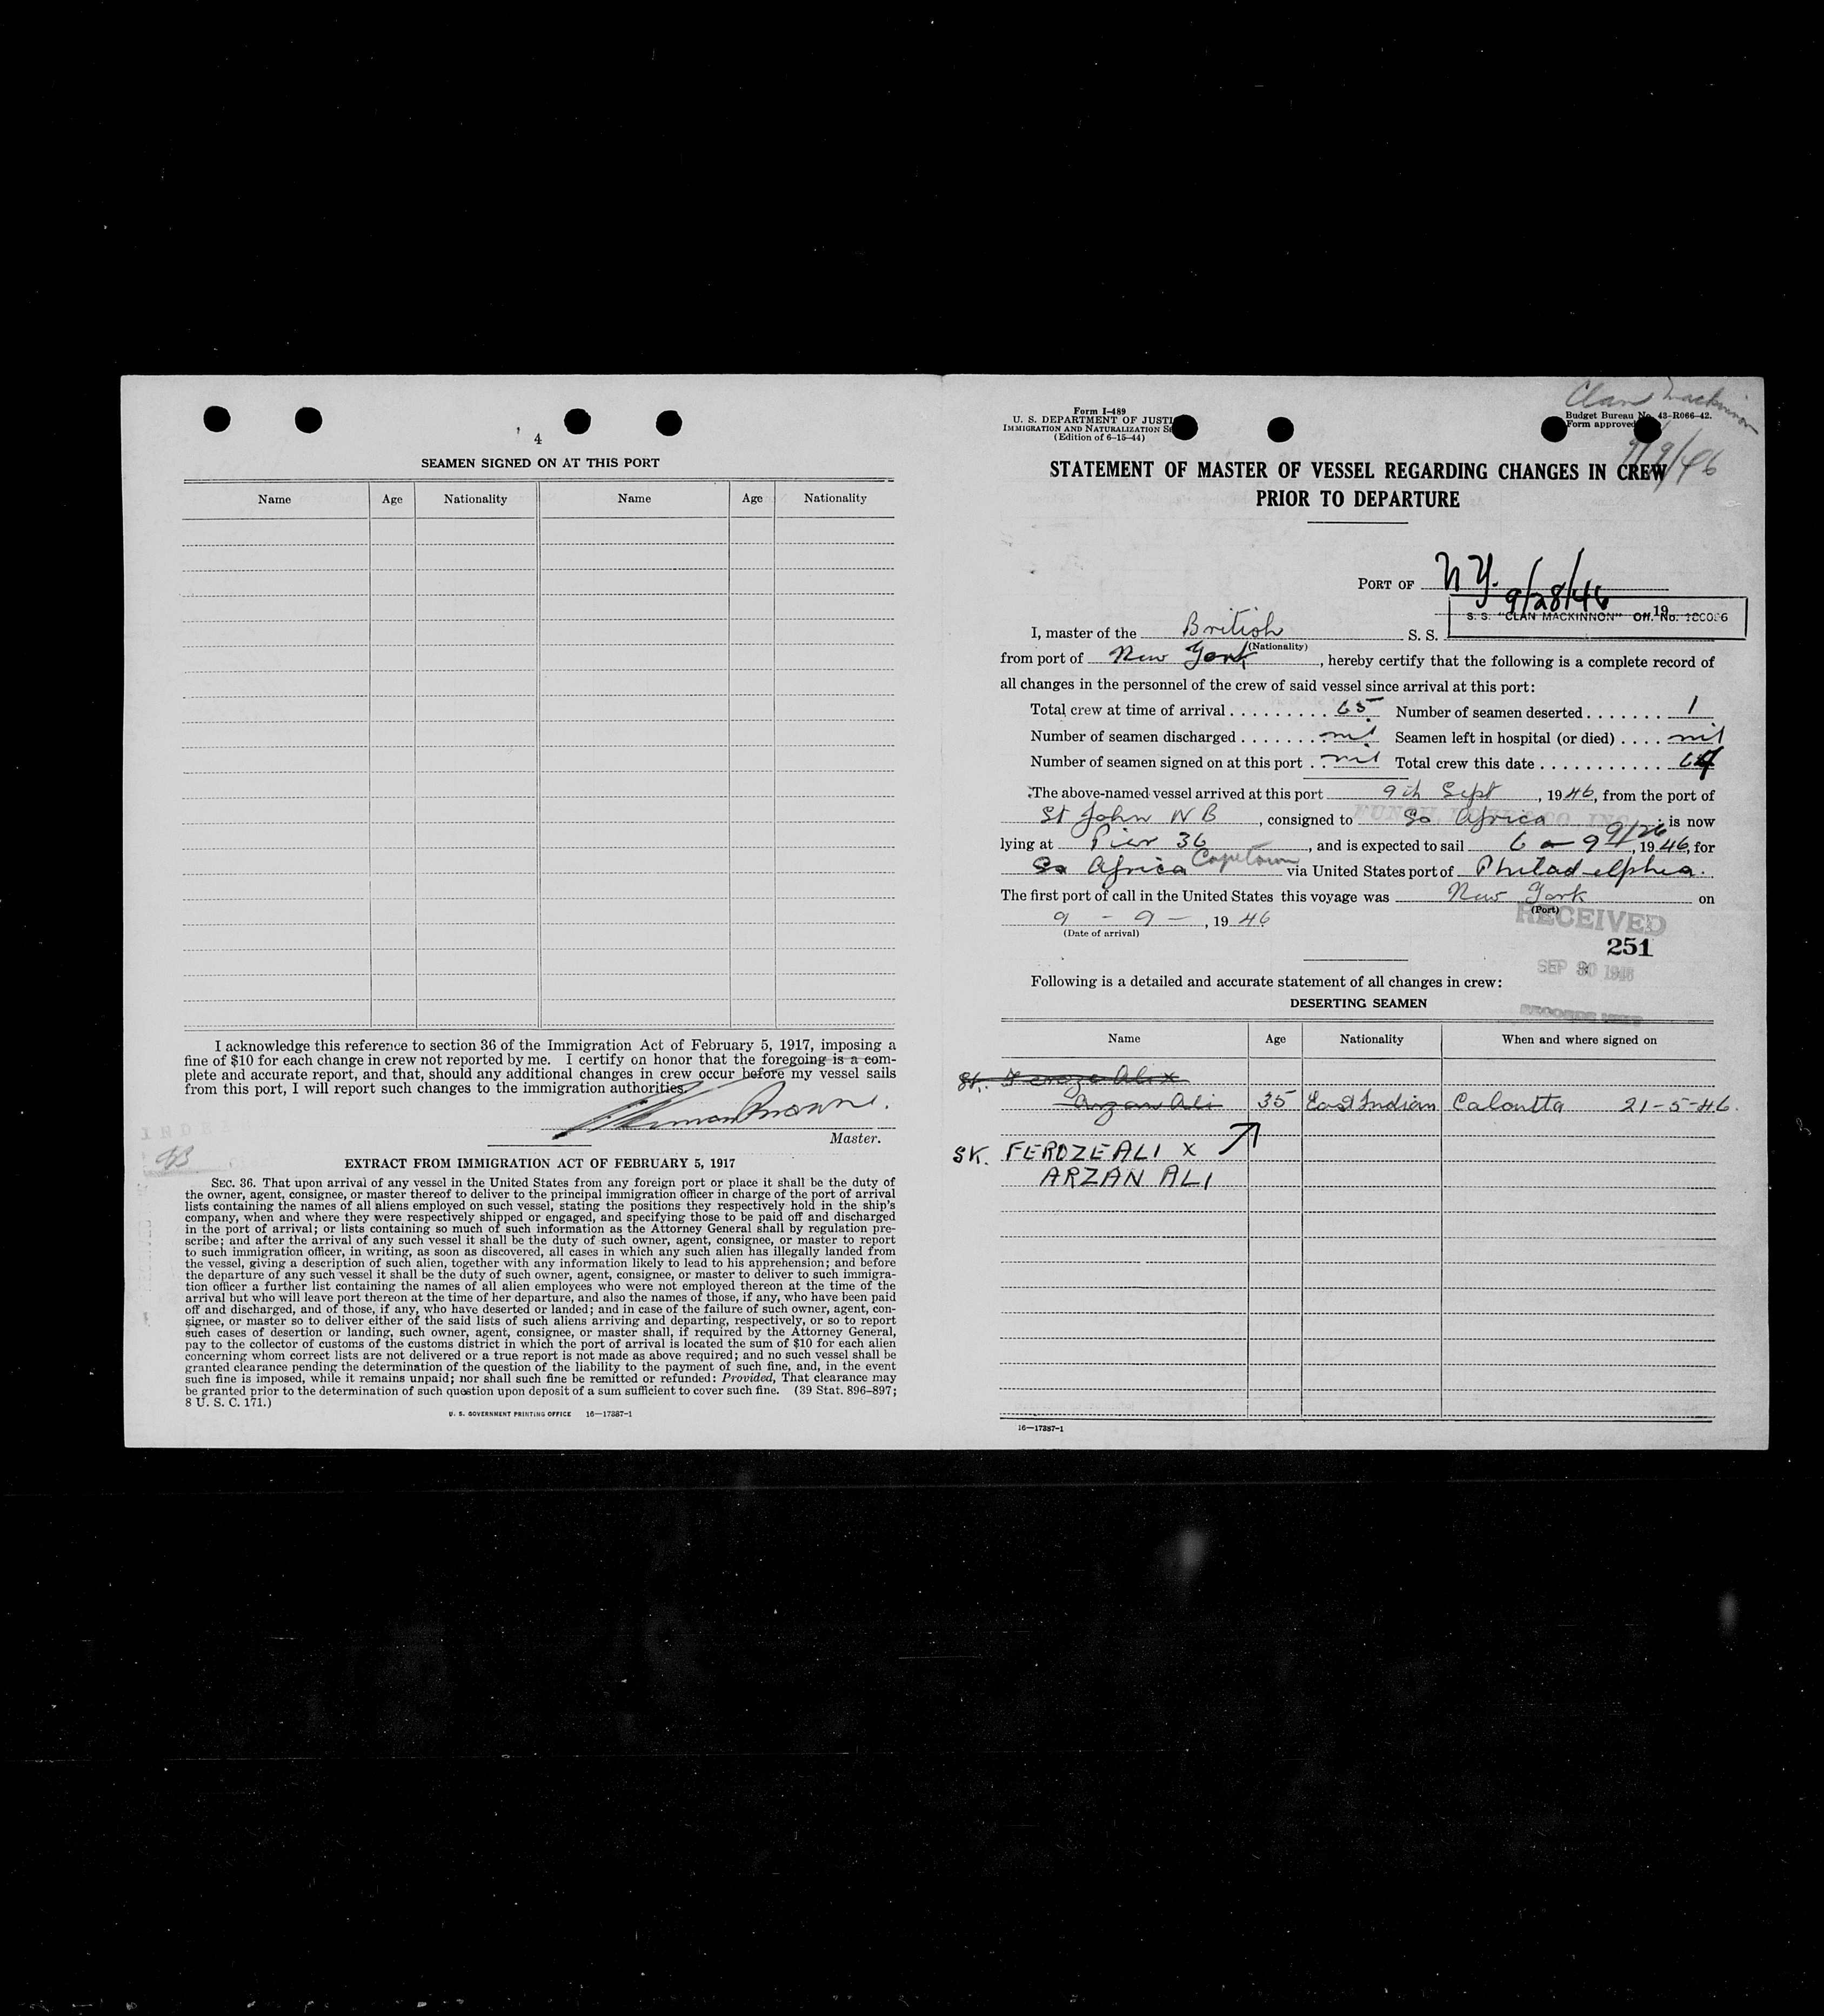 4
SEAMEN SIGNED ON AT THIS PORT
Name Age Nationality Name Age Nationality
I acknowledge this reference to section 36 of the Immigration Act of February 5, 1917, imposing a
fine of $10 for each change in crew not reported by me. I certify on honor that the foregoing is a com-
plete and accurate report, and that, should any additional changes in crew occur before my vessel sails
from this port, I will report such changes to the immigration authorities.
Master.
EXTRACT FROM IMMIGRATION ACT OF FEBRUARY 5, 1917
SEC. 36. That upon arrival of any vessel in the United States from any foreign port or place it shall be the duty of
the owner, agent, consignee, or master thereof to deliver to the principal immigration officer in charge of the port of arrival
lists containing the names of all aliens employed on such vessel, stating the positions they respectively hold in the ship's
company, when and where they were respectively shipped or engaged, and specifying those to be paid off and discharged
in the port of arrival; or lists containing so much of such information as the Attorney General shall by regulation pre-
scribe; and after the arrival of any such vessel it shall be the duty of such owner, agent, consignee, or master to report
to such immigration officer, in writing, as soon as discovered, all cases in which any such alien has illegally landed from
the vessel, giving a description of such alien, together with any information likely to lead to his apprehension; and before
the departure of any such vessel it shall be the duty of such owner, agent, consignee, or master to deliver to such immigra-
tion officer a further list containing the names of all alien employees who were not employed thereon at the time of the
arrival but who will leave port thereon at the time of her departure, and also the names of those, if any, who have been paid
off and discharged, and of those, if any, who have deserted or landed; and in case of the failure of such owner, agent, con-
signee, or master so to deliver either of the said lists of such aliens arriving and departing, respectively, or so to report
such cases of desertion or landing, such owner, agent, consignee, or master shall, if required by the Attorney General,
pay to the collector of customs of the customs district in which the port of arrival is located the sum of $10 for each alien
concerning whom correct lists are not delivered or a true report is not made as above required; and no such vessel shall be
granted clearance pending the determination of the question of the liability to the payment of such fine, and, in the event
such fine is imposed, while it remains unpaid; nor shall such fine be remitted or refunded: Provided, That clearance may
be granted prior to the determination of such question upon deposit of a sum sufficient to cover such fine. (39 Stat. 896-897;
8 U. S. C. 171.)
U. S. GOVERNMENT PRINTING OFFICE 16—17387-1
Clan Mackinnon
9/9/46
Form I-489
U. S. DEPARTMENT OF JUSTI
IMMIGRATION AND NATURALIZATION SE
(Edition of 6-15-44)
Budget Bureau No. 43-R066-42.
Form approved
STATEMENT OF MASTER OF VESSEL REGARDING CHANGES IN CREW
PRIOR TO DEPARTURE
PORT OF N.Y.
9/28/46 19
S. S. "CLAN MACKINNON" Off. No.
I, master of the British S. S.
(Nationality)
from port of New York, hereby certify that the following is a complete record of
all changes in the personnel of the crew of said vessel since arrival at this port:
Total crew at time of arrival 65 Number of seamen deserted 1
Number of seamen discharged nil Seamen left in hospital (or died) nil
Number of seamen signed on at this port nil Total crew this date 64
The above-named vessel arrived at this port 9th Sept, 1946, from the port of
St John N B, consigned to So Africa; is now
lying at Pier 36, and is expected to sail 9/26, 1946, for
So Africa Capetown via United States port of Philadelphia.
The first port of call in the United States this voyage was New York on
(Port)
9 - 9 -, 1946
(Date of arrival)
RECEIVED
251
SEP 30 1946
Following is a detailed and accurate statement of all changes in crew:
RECORDS UNIT
DESERTING SEAMEN
Name Age Nationality When and where signed on
SK. Feroze Ali x
Arzan Ali 35 East Indian Calcutta 21-5-46.
SK. FEROZE ALI X
ARZAN ALI
16—17387-1